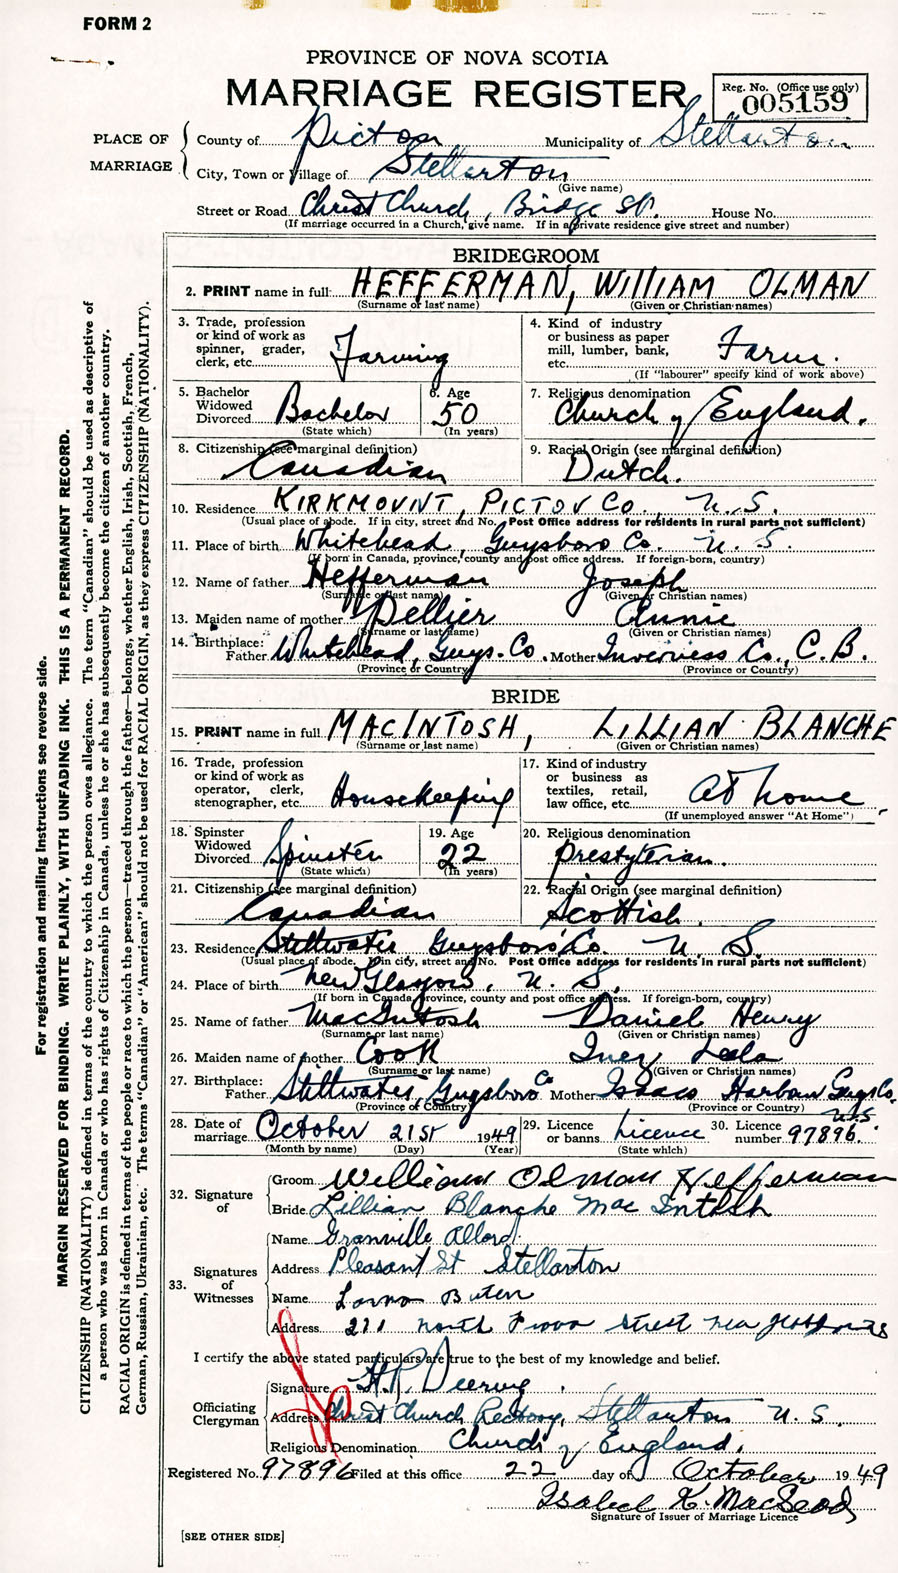 FORM 2
PROVINCE OF NOVA SCOTIA
MARRIAGE REGISTER
Reg. No. (Office use only)
005159
PLACE OF MARRIAGE
County of Pictou Municipality of Stellarton
City, Town or Village of Stellarton
(Give name)
Street or Road Christ Church, Bridge St. House No.
(If marriage occurred in a Church, give name. If in a private residence give street and number)
BRIDEGROOM
2. PRINT name in full HEFFERMAN, WILLIAM OLMAN
(Surname or last name) (Given or Christian names)
3. Trade, profession or kind of work as spinner, grader, clerk, etc. Farming
4. Kind of industry or business as paper mill, lumber, bank, etc. Farm.
(If "labourer" specify kind of work above)
5. Bachelor Widowed Divorced Bachelor
(State which)
6. Age 50
(In years)
7. Religious denomination Church of England.
8. Citizenship (see marginal definition) Canadian
9. Racial Origin (see marginal definition) Dutch.
10. Residence KIRKMOUNT, PICTOU CO., N.S.
(Usual place of abode. If in city, street and No. Post Office address for residents in rural parts not sufficient)
11. Place of birth Whitehead, Guysboro Co. N.S.
(If born in Canada, province, county and post office address. If foreign-born, country)
12. Name of father Hefferman Joseph
(Surname or last name) (Given or Christian names)
13. Maiden name of mother Pellier Annie
(Surname or last name) (Given or Christian names)
14. Birthplace: Father Whitehead, Guys. Co. Mother Inverness Co., C.B.
(Province or Country) (Province or Country)
BRIDE
15. PRINT name in full MACINTOSH, LILLIAN BLANCHE
(Surname or last name) (Given or Christian names)
16. Trade, profession or kind of work as operator, clerk, stenographer, etc. Housekeeping
17. Kind of industry or business as textiles, retail, law office, etc. at home
(If unemployed answer "At Home")
18. Spinster Widowed Divorced Spinster
(State which)
19. Age 22
(In years)
20. Religious denomination Presbyterian.
21. Citizenship (see marginal definition) Canadian
22. Racial Origin (see marginal definition) Scottish.
23. Residence Stillwater Guysboro Co. N.S.
(Usual place of abode. If in city, street and No. Post Office address for residents in rural parts not sufficient)
24. Place of birth New Glasgow, N.S.
(If born in Canada, province, county and post office address. If foreign-born, country)
25. Name of father MacIntosh Daniel Henry
(Surname or last name) (Given or Christian names)
26. Maiden name of mother Cook Inez Leela
(Surname or last name) (Given or Christian names)
27. Birthplace: Father Stillwater, Guysboro Co Mother Isaacs Harbour Guys Co. N.S.
(Province or Country) (Province or Country)
28. Date of marriage October 21st 1949
(Month by name) (Day) (Year)
29. Licence or banns Licence
(State which)
30. Licence number 97896.
32. Signature of
Groom William Olman Hefferman
Bride Lillian Blanche Mac Intosh
33. Signatures of Witnesses
Name Granville Allord
Address Pleasant St Stellarton
Name Lorna
Address 211 North Street New
I certify the above stated particulars are true to the best of my knowledge and belief.
Officiating Clergyman
Signature H.R. Deering
Address Christ Church Rectory, Stellarton N.S.
Religious Denomination Church of England.
Registered No. 97896 Filed at this office 22 day of October 1949
Isabel K. MacLeod
Signature of Issuer of Marriage Licence
[SEE OTHER SIDE]
For registration and mailing instructions see reverse side.
MARGIN RESERVED FOR BINDING. WRITE PLAINLY, WITH UNFADING INK. THIS IS A PERMANENT RECORD.
CITIZENSHIP (NATIONALITY) is defined in terms of the country to which the person owes allegiance. The term "Canadian" should be used as descriptive of
a person who was born in Canada or who has rights of Citizenship in Canada, unless he or she has subsequently become the citizen of another country.
RACIAL ORIGIN is defined in terms of the people or race to which the person—traced through the father—belongs, whether English, Irish, Scottish, French,
German, Russian, Ukrainian, etc. The terms "Canadian" or "American" should not be used for RACIAL ORIGIN, as they express CITIZENSHIP (NATIONALITY).